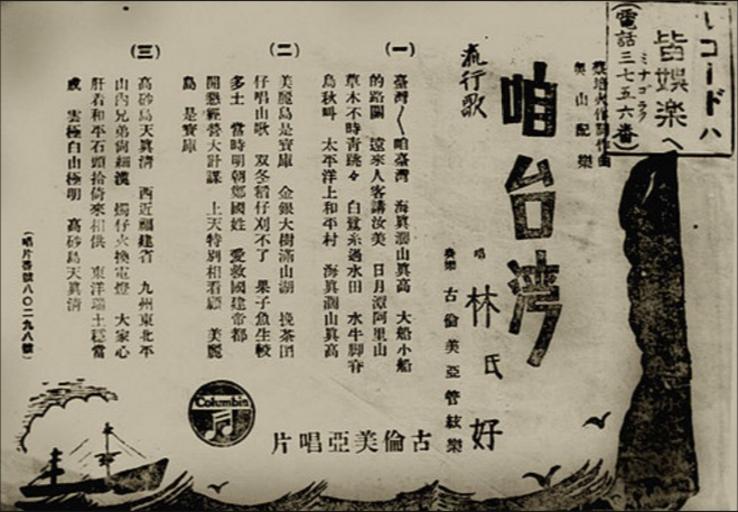 レコードハ
皆娯楽へ
ミナゴラク
(電話三七五六番)
蔡培火作詞作曲
奥山 配樂
咱台湾
流行歌
唱 林氏好
奏樂 古倫美亞管絃樂
(一)
臺灣〱咱臺灣 海眞濶山眞高 大船小船
的路關 遠來人客講汝美 日月潭阿里山
草木不時青跳々 白鷺糸過水田 水牛脚脊
烏秋叫 太平洋上和平村 海眞濶山眞高
(二)
美麗島是寶庫 金銀大樹滿山湖 挽茶囝
仔唱山歌 双冬稻仔刈不了 果子魚生較
多土 當時明朝鄭國姓 愛救國建帝都
開墾經營大計謀 上天特別相看顧 美麗
島 是寶庫
(三)
高砂島天眞清 西近福建省 九州東北平
山內兄弟尙細漢 燭仔火換電燈 大家心
肝着和平石頭拾倚來相供 東洋瑞士穩當
成 雲極白山極明 高砂島天眞清
(唱片番號八〇二九八號)
Columbia
古倫美亞唱片